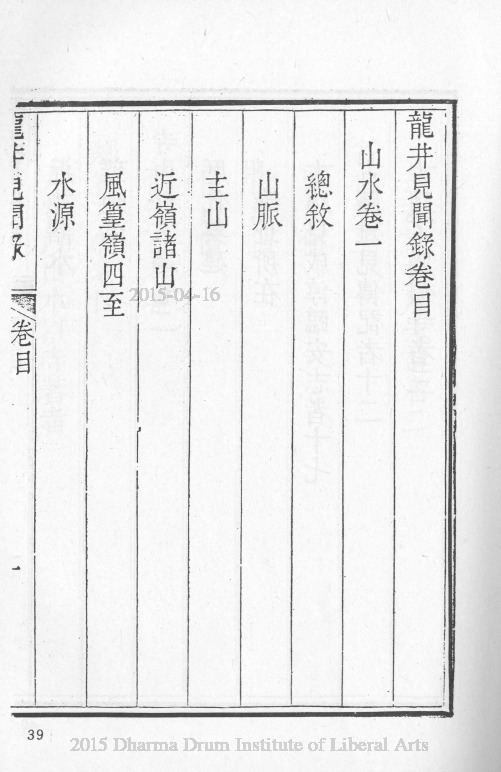 龍井見聞錄卷目
山水卷一
總敘
山脈
主山
近嶺諸山
風篁嶺四至
水源
龍井見聞錄
卷目
一
2015-04-16
39
2015 Dharma Drum Institute of Liberal Arts